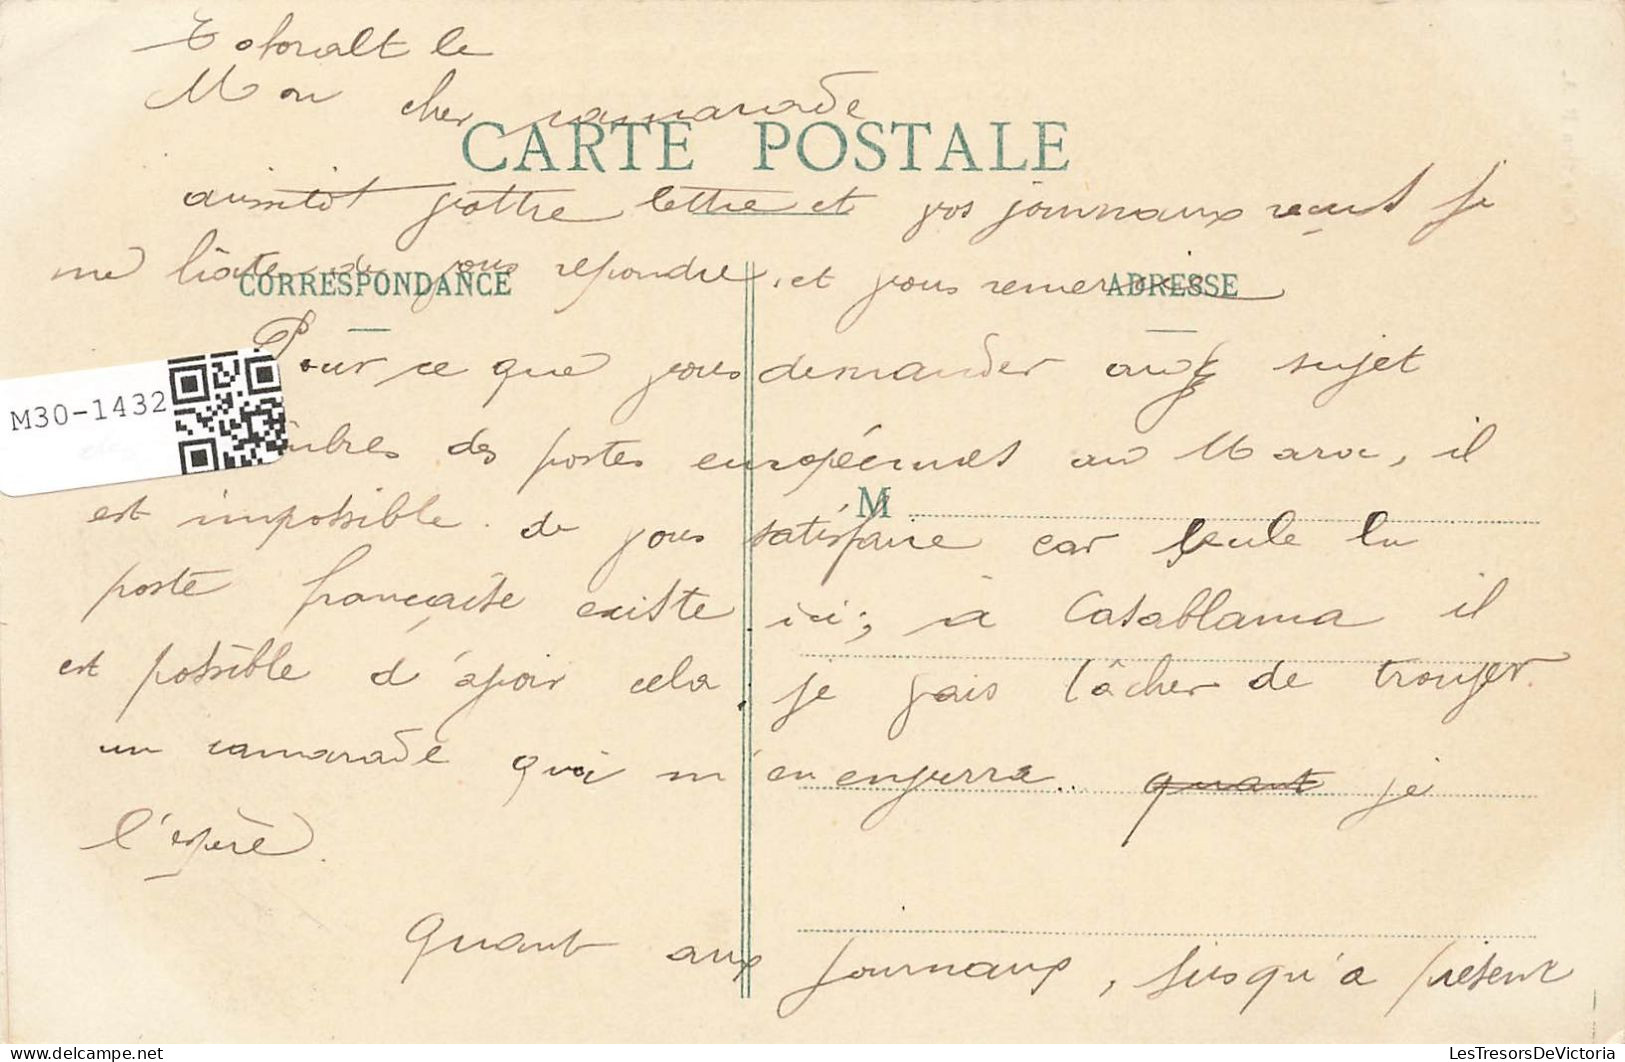 Toforalt le
Mon cher camarade
CARTE POSTALE
aussitôt vottre lettre et vos journaux reçus je
me hâte de vous répondre, et vous remercie
CORRESPONDANCE
ADRESSE
Pour ce que vous demander au sujet
M30-1432
des postes européennes au Maroc, il
M
est impossible de vous satisfaire car seule la
poste française existe ici; à Casablanca il
est possible d'avoir cela, je vais tâcher de trouver
un camarade qui m'en enverra.. quant je
l'espère.
Quant aux journaux, jusqu'à présent
LesTresorsDeVictoria